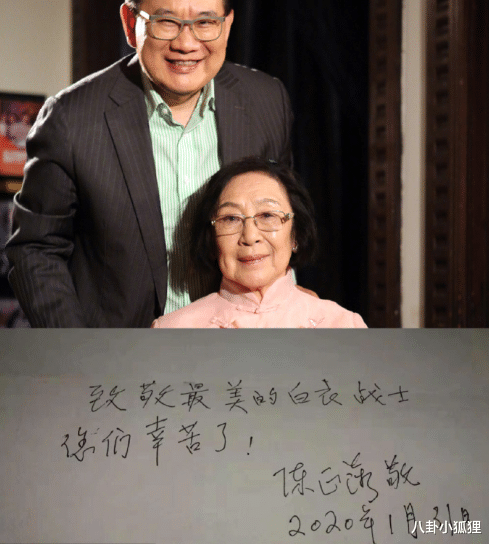 致敬最美的白衣战士
你们辛苦了!
陈正薇敬
2020年1月31日
八卦小狐狸